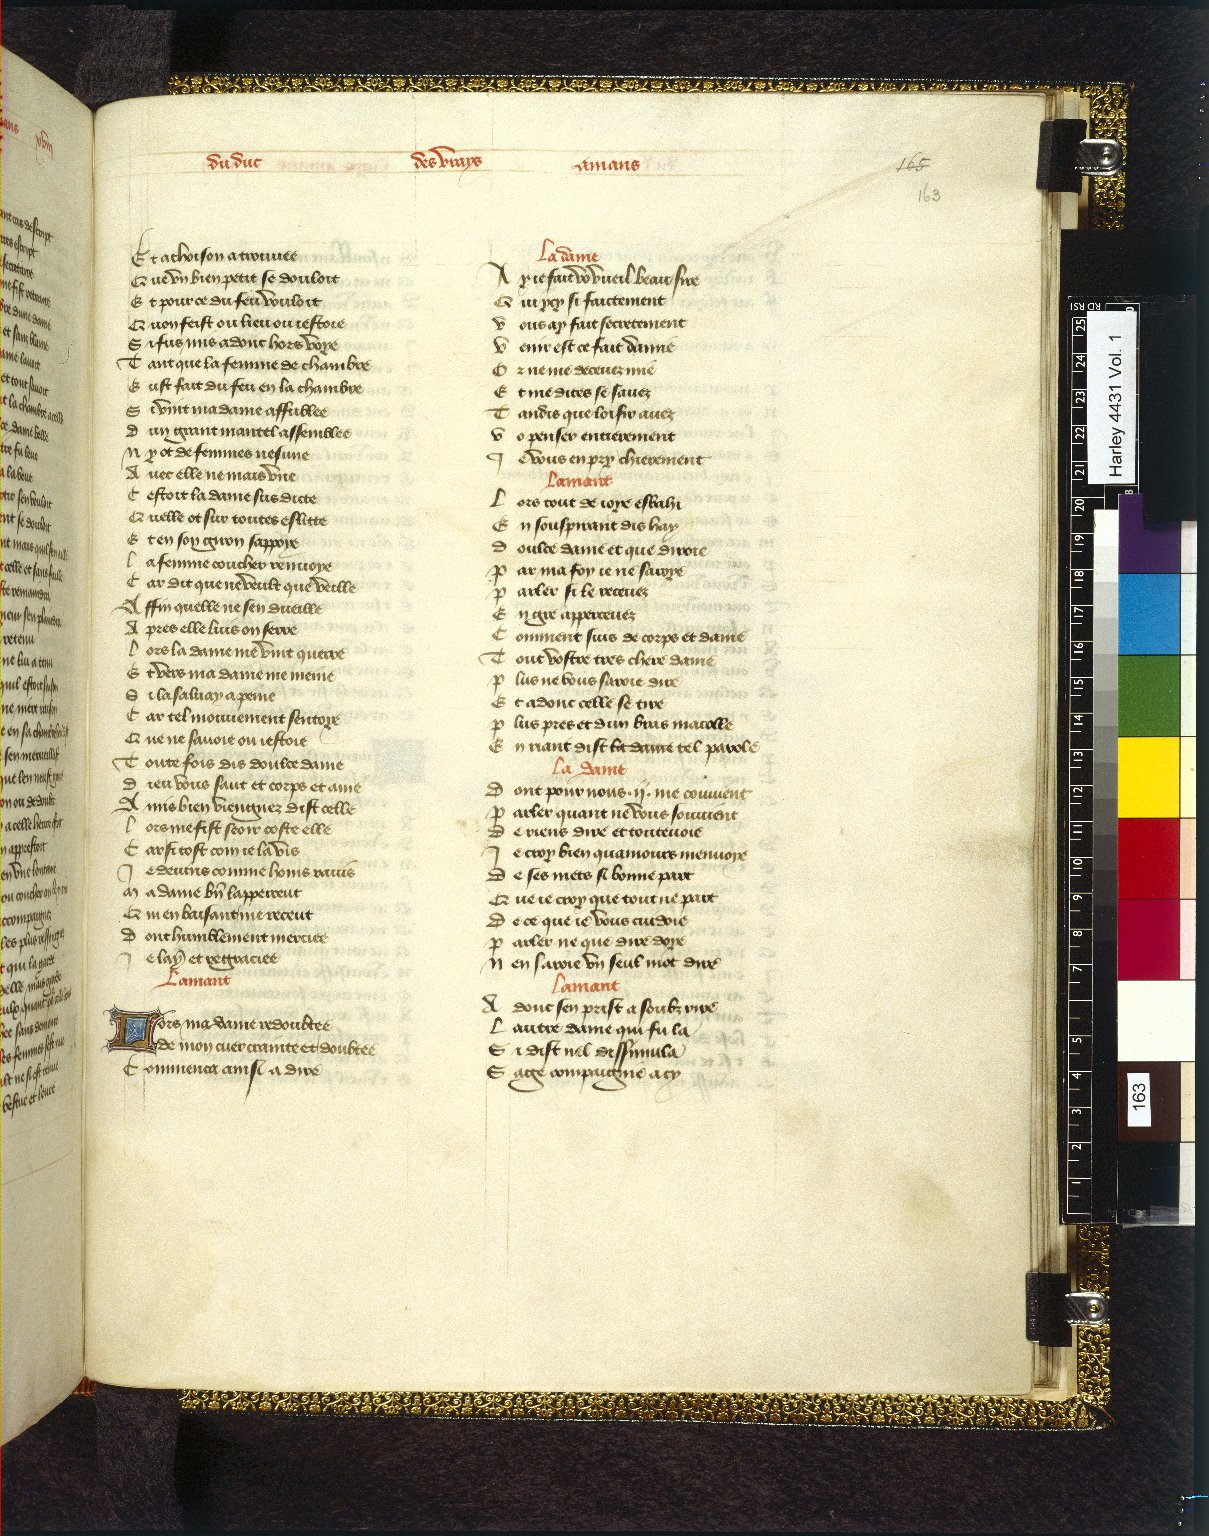 du duc des vrays amans
165
163
Et achoison a trouuee
Que vn bien petit se douloit
Et pour ce du feu vouloit
Quon feist ou lieu ou iestoie
Si fus mis adonc hors voye
Tant que la femme de chambre
Eust fait du feu en la chambre
Si vint ma dame affublee
dun grant mantel assemblee
Ny ot de femmes nesune
Auec elle ne mais vne
Cestoit la dame sus dicte
Quelle ot sur toutes eslitte
Et en son giron sappoye
la femme coucher renuoye
Car dit que ne veult que veille
Affin quelle ne sen dueille
Apres elle luis on serre
lors la dame me vint querre
Et vers ma dame me meine
Si la saluay a peine
Car tel mouuement sentoye
Que ne sauoie ou iestoie
Toute fois dis doulce dame
dieu vous saut et corps et ame
Amis bien viengnez dist celle
lors me fist seoir coste elle
Car si tost com ie la vis
Je deuins comme homs rauis
Ma dame bn lapperceut
Qui en baisant me receut
dont humblement merciee
Je lay et regraciee
Lamant
lors ma dame redoubtee
de mon cuer crainte et doubtee
Commenca ainsi a dire
La dame
Ay ie fait vo vueil beau sire
Qui cy si faittement
vous ay fait secretement
venir est ce fait damie
Or ne me deceuez mie
Et me dites se sauez
Tandis que loisir auez
vo penser entierement
Je vous en pry chierement
Lamant
Lors tout de ioye esbahi
En souspirant dis hay
doulce dame et que diroie
par ma foy ie ne saroye
parler si le receuez
En gre apperceuez
Comment suis de corps et dame
Tout vostre tres chere dame
plus ne vous saroie dire
Et adonc celle se tire
plus pres et dun bras macolle
En riant dist la dame tel parole
La dame
Dont pour nous .ii. me couuient
parler quant ne vous souuient
De riens dire et toutevoie
Je croy bien quamours menuoye
De ses mets si bonne part
Que ie croy que tout ne part
De ce que ie vous cuidoie
parler ne que dire doye
Nen saroie vn seul mot dire
Lamant
Adonc sen prist a soubzrire
Lautre dame qui fu la
Si dist nel dissimula
Sage compaigne a cy
Harley 4431 Vol. 1
163